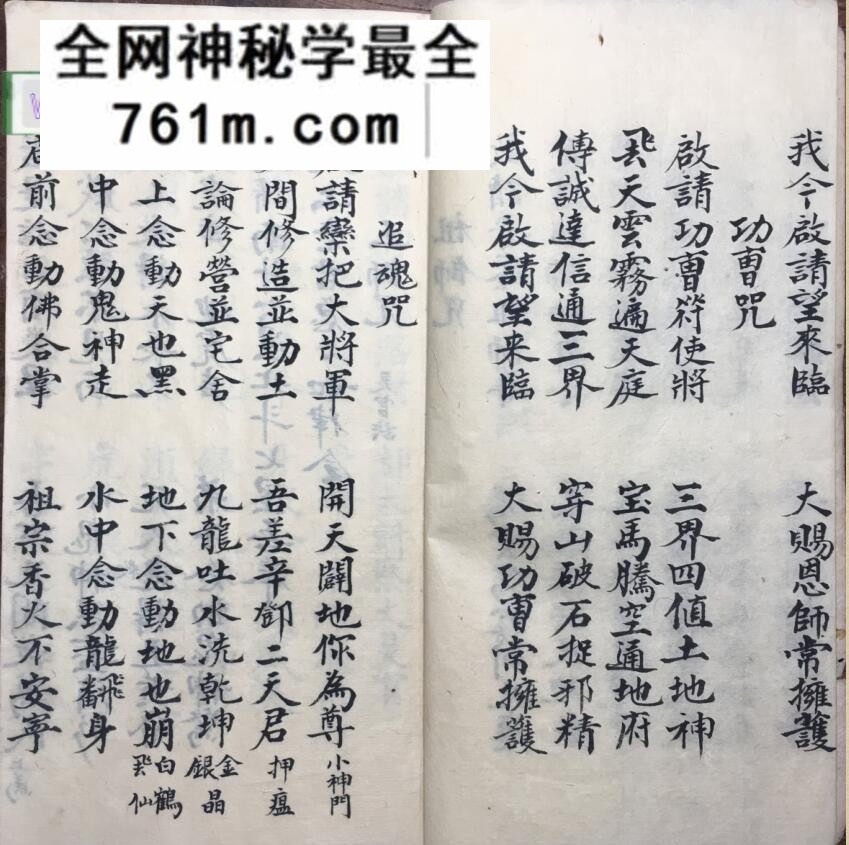 全网神秘学最全
761m.com
我今啟請望來臨 大賜恩師常擁護
功曹咒
啟請功曹符使將 三界四值土地神
飛天雲霧遍天庭 宝馬騰空通地府
傳誠達信通三界 穿山破石捉邪精
我今啟請望来臨 大賜功曹常擁護
追魂咒
請欒把大將軍 開天闢地你為尊 小神門
間修造並動土 吾差辛鄧二天君 押瘟
論修營並宅舍 九龍吐水洗乾坤 金銀晶
上念動天也黑 地下念動地也崩 白鶴飛仙
中念動鬼神走 水中念動龍翻飛身
前念動佛合掌 祖宗香火不安寧